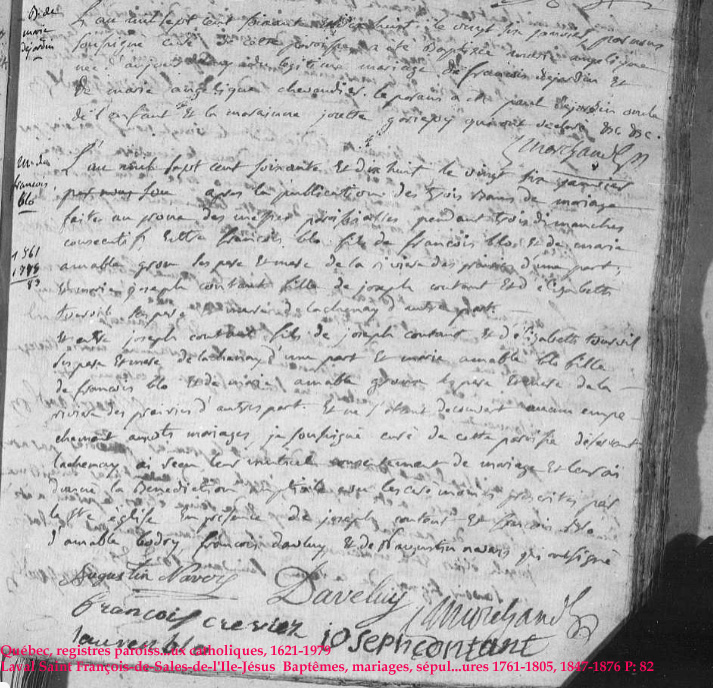 B. de
marie
dejardin
L'an mil sept cent soixante et dix huit le vingt six janvier par nous
soussigné curé de cette paroisse a été baptisée marie angelique
née d'aujourd'huy du legitime mariage de francois dejardin et
de marie angelique chevaudier le parain a été paul dejardin oncle
de l'enfant et la maraine josette gariepy qui ont declaré &c &c.
Marchand ptr
M. de
francois
blo
L'an mil sept cent soixante et dix huit le vingt six janvier
par nous sous apres la publication des trois bans de mariage
faites au prone des messes paroissiales pendant trois dimanches
consecutifs entre francois blo fils de francois blo et de marie
amable grou ses pere et mere de la riviere des prairies d'une part,
et marie joseph contant fille de joseph contant et d'elizabeth
ses pere et mere de lachenay d'autre part.
et entre joseph contant fils de joseph contant et d'elizabeth
ses pere et mere de lachenay d'une part et marie amable blo fille
de francois blo et de marie amable grou ses pere et mere de la
riviere des prairies d'autre part. et ne s'etant decouvert aucun empe
chement auxdits mariages, je soussigné curé de cette paroisse desservant
lachenay ai reçu leur mutuel consentement de mariage et leur ai
donné la benediction nuptiale avec les ceremonies prescrites par
la Ste église en presence de joseph contant et francois blo
d'amable francois daveluy et de augustin navers qui ont signé
1761
1778
83
Augustin Navers Daveluy Marchand ptr
francois crevier
joseph contant
laurent blo
Québec, registres paroiss...ux catholiques, 1621-1979
Laval Saint François-de-Sales-de-l'Ile-Jésus Baptêmes, mariages, sépul...ures 1761-1805, 1847-1876 P: 82